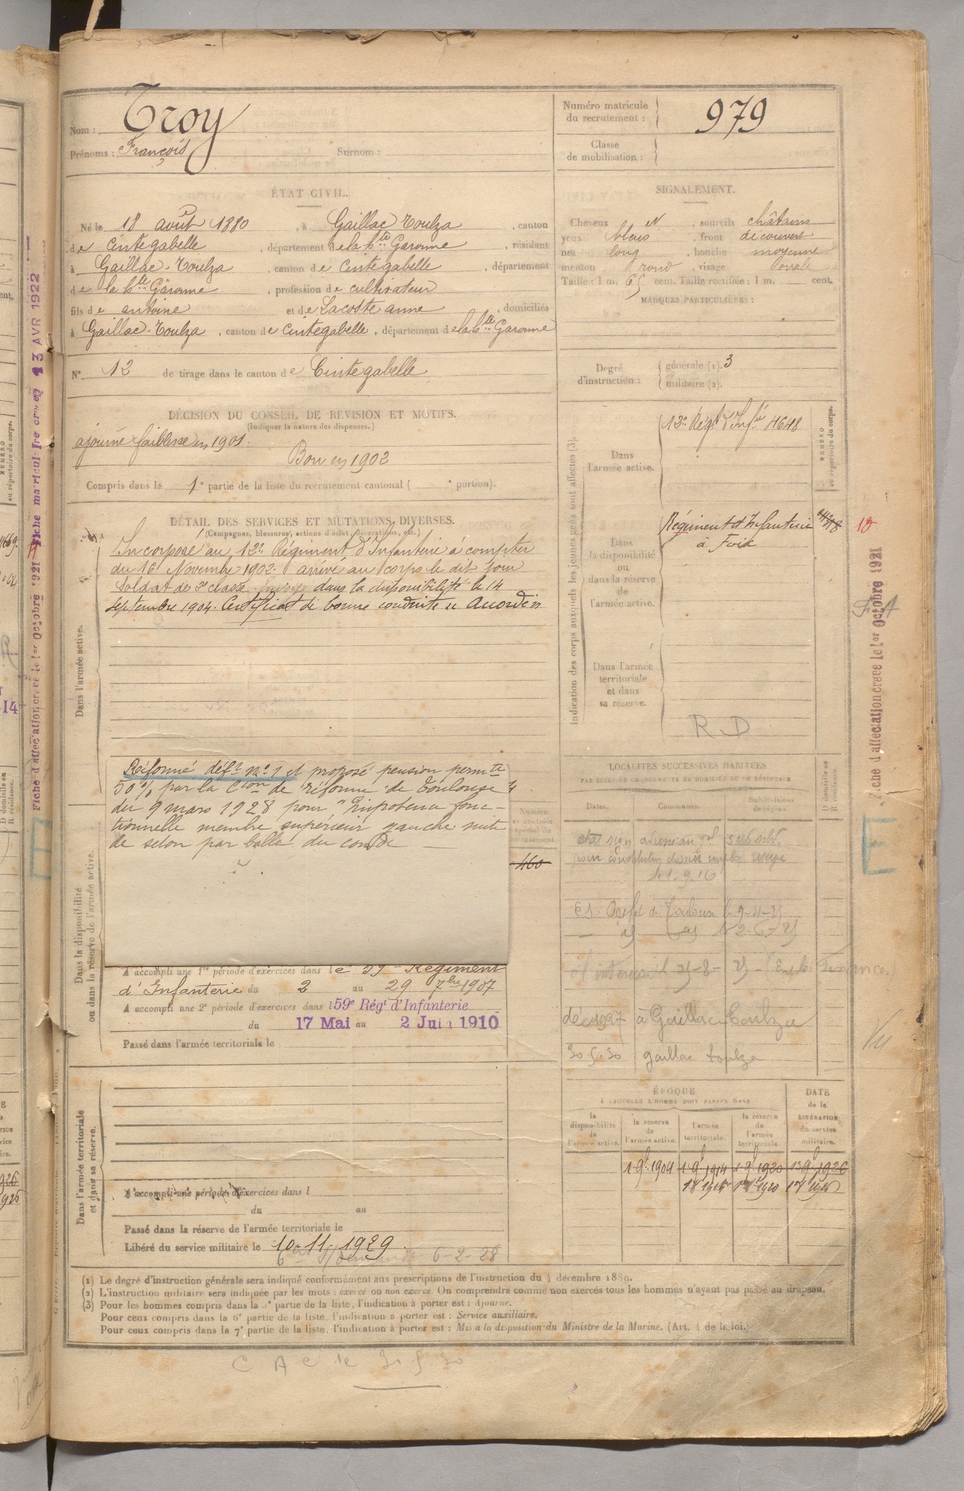 Nom : Troy
Prénoms : François Surnom :
Numéro matricule du recrutement : 979
Classe de mobilisation :
ÉTAT CIVIL.
Né le 18 août 1880, à Gaillac Toulza, canton
de Cintegabelle, département de la Hte Garonne, résidant
à Gaillac-Toulza, canton de Cintegabelle, département
de la Hte Garonne, profession de cultivateur
fils de antoine et de Lacoste anne, domiciliés
à Gaillac-Toulza, canton de Cintegabelle, département de la Hte Garonne
N° 12 de tirage dans le canton de Cintegabelle
SIGNALEMENT.
Cheveux N, sourcils châtains
yeux bleus, front découvert
nez long, bouche moyenne
menton rond, visage ovale
Taille : 1 m. 65 cent. Taille rectifiée : 1 m. cent.
MARQUES PARTICULIÈRES :
Degré d'instruction : générale (1). 3
militaire (2).
DÉCISION DU CONSEIL DE RÉVISION ET MOTIFS.
(Indiquer la nature des dispenses.)
ajourné faiblesse en 1901.
Bon en 1902
Compris dans la 1e partie de la liste du recrutement cantonal ( portion).
DÉTAIL DES SERVICES ET MUTATIONS DIVERSES.
(Campagnes, blessures, actions d'éclat, décorations, etc.)
Dans l'armée active.
Incorporé au 12e Régiment d'Infanterie à compter
du 16 Novembre 1902. arrivé au corps le dit jour
Soldat de 2e classe passé dans la disponibilité le 14
Septembre 1904. Certificat de bonne conduite "Accordé"
Réformé déft n° 1 et proposé pension permte
50 % par la Cion de réforme de Toulouse
du 9 mars 1928 pour "Impotence fonc-
tionnelle membre supérieur gauche suite
de séton par balle du coude
Dans la disponibilité ou dans la réserve de l'armée active.
A accompli une 1re période d'exercices dans le 59e Régiment
d'Infanterie du 2 au 29 7bre 1907
A accompli une 2e période d'exercices dans l 59e Régt d'Infanterie
du 17 Mai au 2 Juin 1910
Passé dans l'armée territoriale le
Dans l'armée territoriale et dans sa réserve.
A accompli une période d'exercices dans l
du au
Passé dans la réserve de l'armée territoriale le
Libéré du service militaire le 10-11-1929
6-2-28
Indication des corps auxquels les jeunes gens sont affectés (3).
NUMÉRO au répertoire du corps.
Dans l'armée active.
12e Régt d'Infie
Dans la disponibilité ou dans la réserve de l'armée active.
Régiment d'Infanterie
à Foix
Dans l'armée territoriale et dans sa réserve.
R D
LOCALITÉS SUCCESSIVES HABITÉES
Dates. Communes. Subdivisions de région.
460
1.9.16
decu 1927 à Gaillac-Toulza
30.5.30 gaillac toulza
ÉPOQUE
À LAQUELLE L'HOMME DOIT PASSER DANS
la disponibilité de l'armée active. la réserve de l'armée active. l'armée territoriale. la réserve de l'armée territoriale.
DATE de la LIBÉRATION du service militaire.
(1) Le degré d'instruction générale sera indiqué conformément aux prescriptions de l'instruction du 4 décembre 1889.
(2) L'instruction militaire sera indiquée par les mots : exercé ou non exercé. On comprendra comme non exercés tous les hommes n'ayant pas passé au drapeau.
(3) Pour les hommes compris dans la 5e partie de la liste, l'indication à porter est : Ajourné.
Pour ceux compris dans la 6e partie de la liste, l'indication à porter est : Service auxiliaire.
Pour ceux compris dans la 7e partie de la liste, l'indication à porter est : Mis à la disposition du Ministre de la Marine. (Art. 4 de la loi.)
C A C le 30 5 30
Fiche d'affectation créée le 1er octobre 1921
13 AVR 1922
E
Fiche d'affectation créée le 1er octobre 1921
E